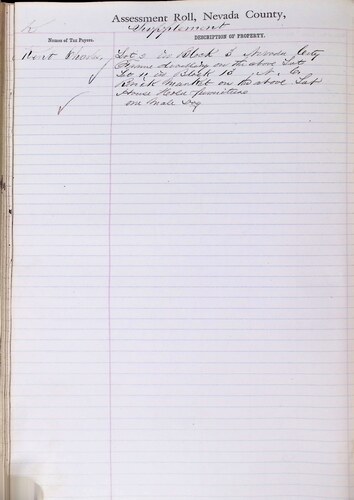 K
Assessment Roll, Nevada County,
Supplement
Names of Tax Payers.
DESCRIPTION OF PROPERTY.
Charles
Lot 2 in Block 3 Nevada City
Frame dwelling on the above Lot
Lo in Block 13 N. C.
Brick Market on the above Lot
House Hold furniture
one Male Dog